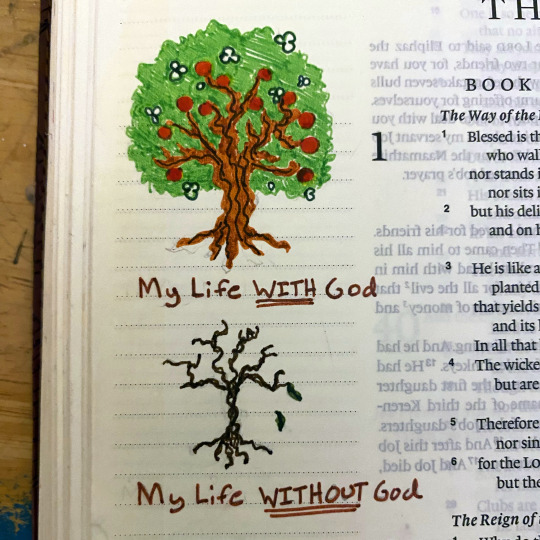 My Life WITH God
My Life WITHOUT God
TH
BOOK
The Way of the
1
1 Blessed is th
who wal
nor stands i
nor sits i
2 but his deli
and on h
3 He is like a
planted
that yields
and its l
In all that
4 The wicke
but are
5 Therefore
nor sin
6 for the Lo
but the
The Reign of